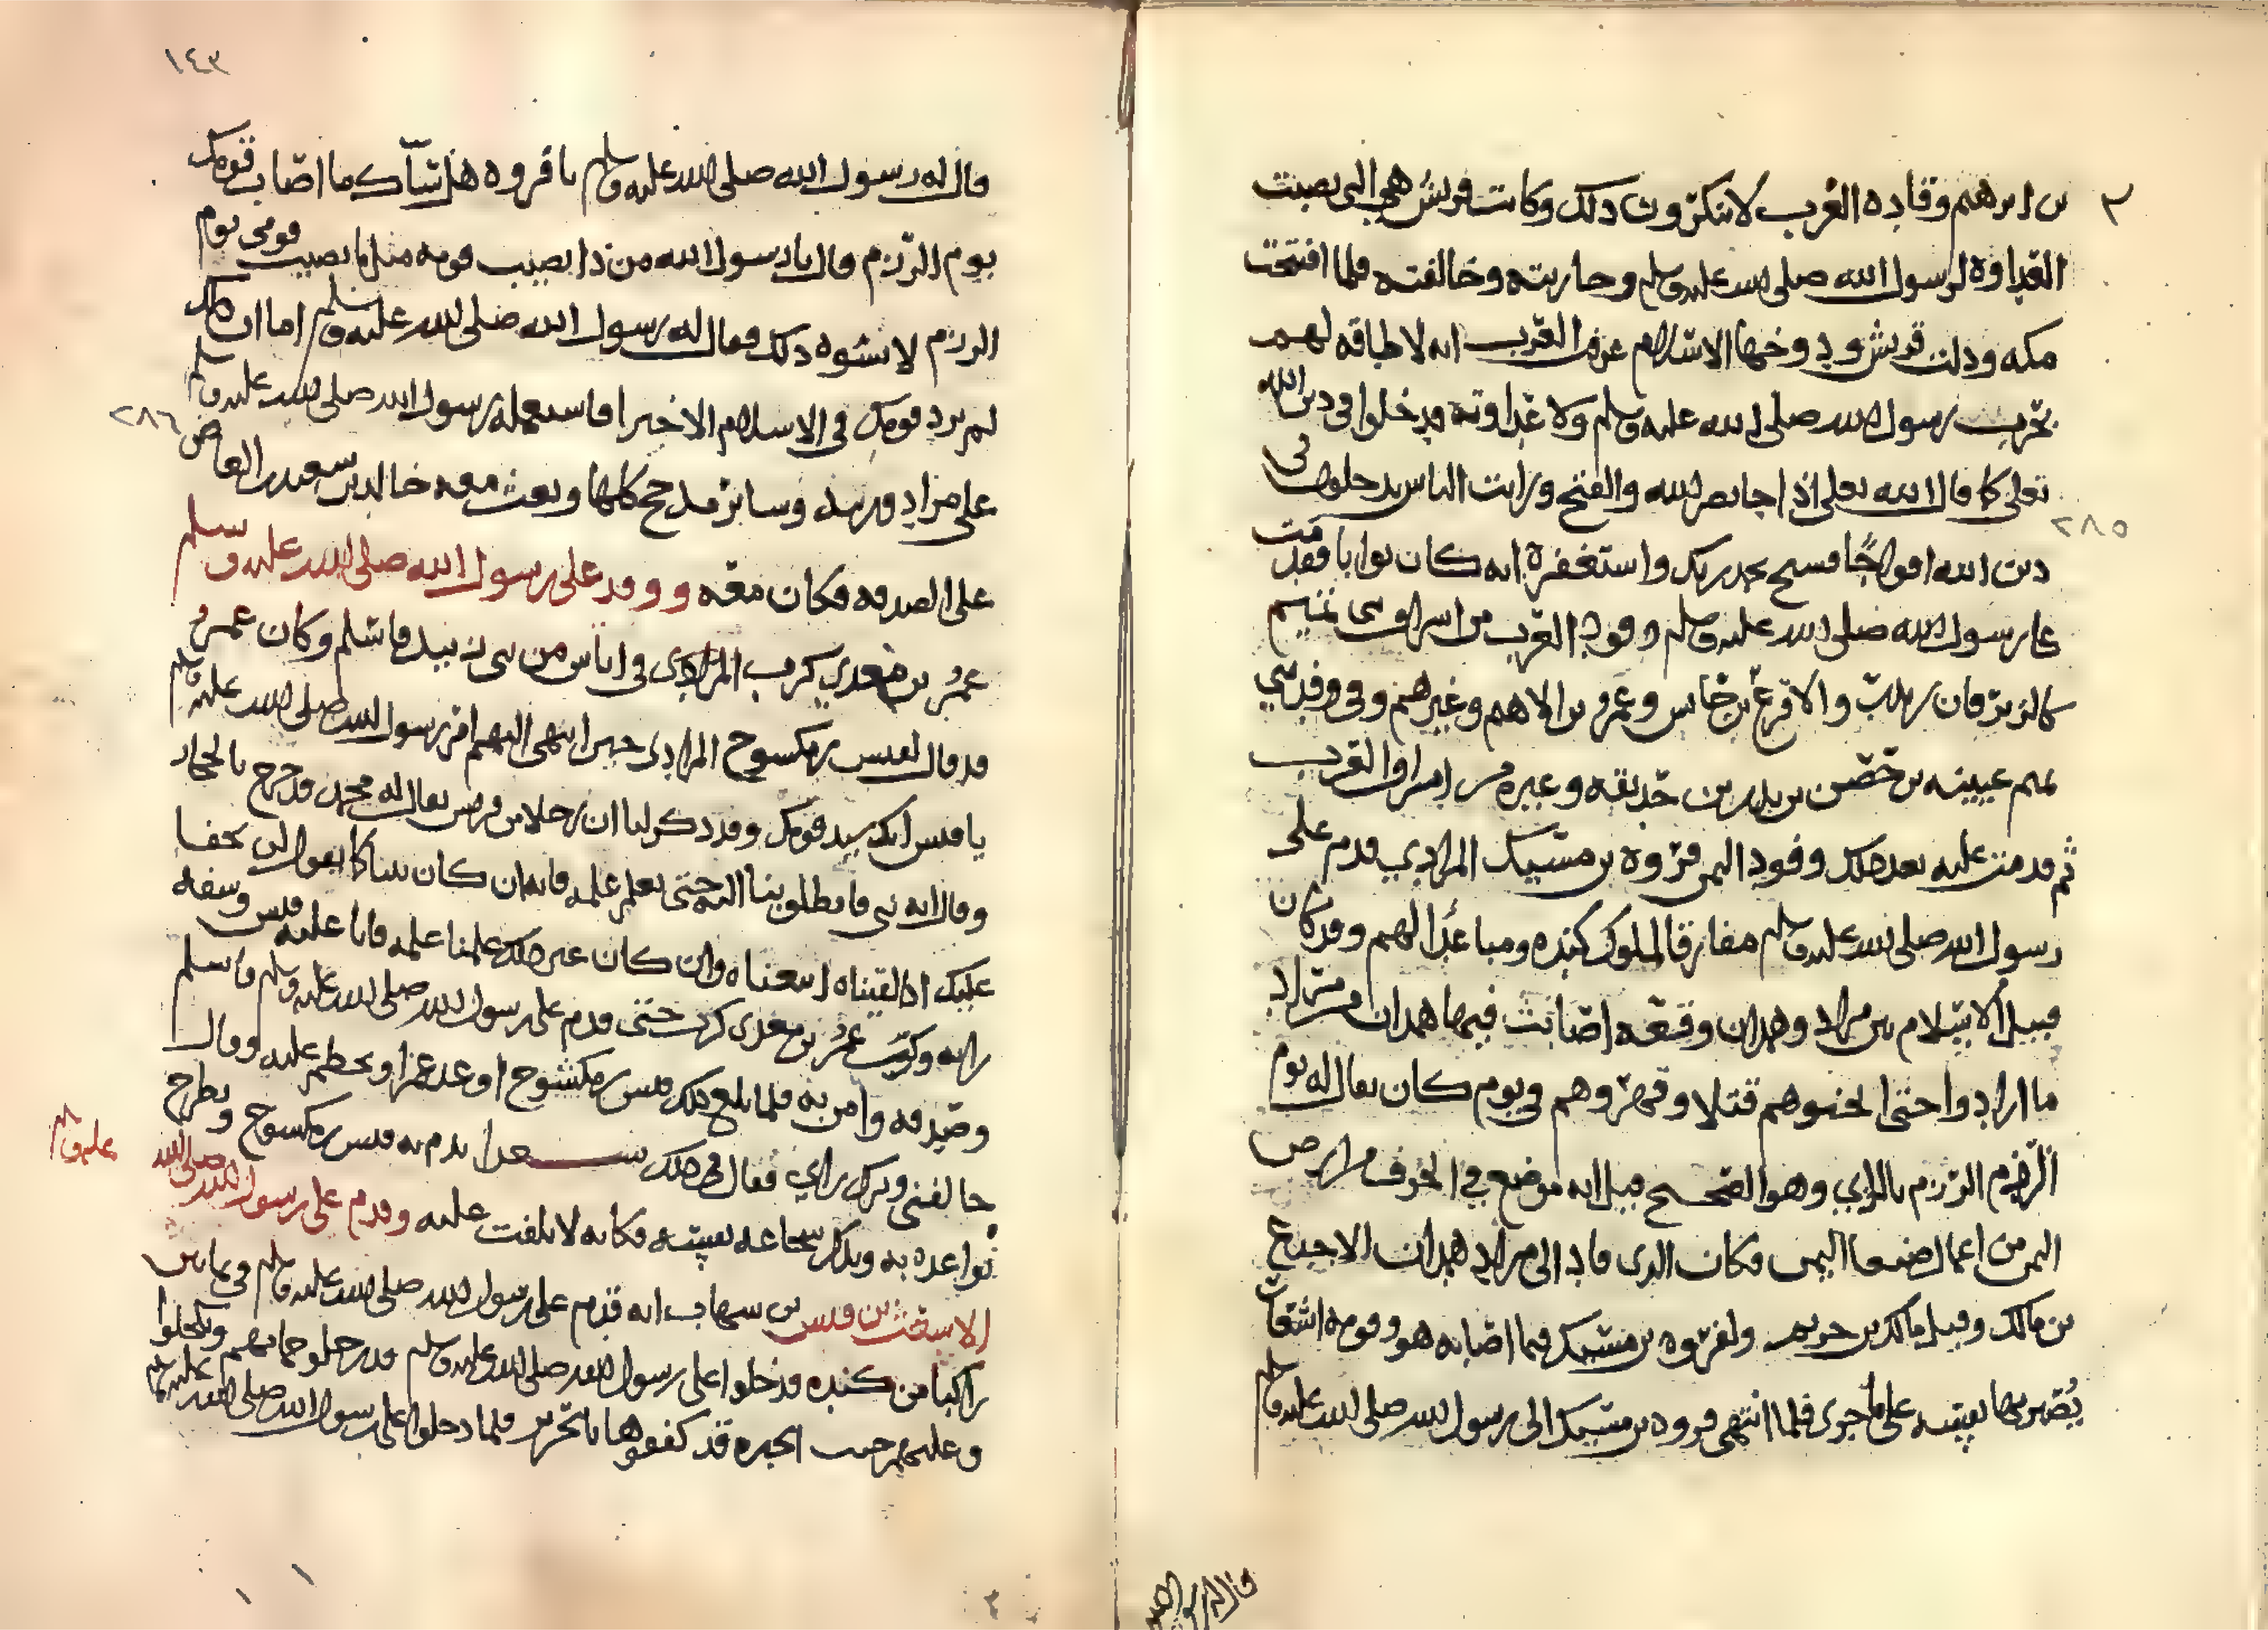 ٣
بن ابرهيم وقاده العرب لا ينكرون ذلك وكانت قريش هي التي نصبت
العداوة لرسول الله صلى الله عليه وسلم وحاربته وخالفته فلما افتتحت
مكه ودانت قريش ودوخها الاسلام عرف العرب انه لا طاقه لهم
بحرب رسول الله صلى الله عليه وسلم ولا عداوته فدخلوا في دين الله
تعلى كما قال الله تعلى اذا جا نصر الله والفتح ورايت الناس يدخلون في
٢٨٥
دين الله افواجًا فسبح بحمد ربك واستغفره انه كان توابا فقدمت
على رسول الله صلى الله عليه وسلم وفود العرب من اشراف بني تميم
كالزبرقان بن بدر والاقرع بن حابس وعمرو بن الاهتم وغيرهم وفي وفد بني
تميم عيينه بن حصن بن بدر بن حذيفه وغيره من اشراف العرب
ثم قدمت عليه بعد ذلك وفود اليمن فروه بن مسيك المرادي قدم على
رسول الله صلى الله عليه وسلم مفارقا لملوك كنده ومباعدًا لهم وقد كان
قبيل الاسلام بين مراد وهمدان وقعه اصابت فيها همدان من مراد
ما ارادوا حتى اثخنوهم قتلا وقهروهم في يوم كان يقال له يوم
الرزم الرزم بالزاي وهو الصحيح قيل انه موضع في الجوف من ارض
اليمن من اعمال صنعا اليمن فكان الذي قاد الى مراد همدان الاجدع
بن مالك وقيل مالك بن حريم ولفروه بن مسيك فيما اصابه هو وقومه اشعار
يُصبر بها نفسه على ما جرى فلما انتهى فروه بن مسيك الى رسول الله صلى الله عليه وسلم
١٤٣
قال له رسول الله صلى الله عليه وسلم يا فروه هل ساك ما اصاب قومك
يوم الرزم قال يا رسول الله من ذا يصيب قومه مثل ما يصيب قومي يوم
الرزم لا يسوه ذلك فقال له رسول الله صلى الله عليه وسلم اما ان ذلك
لم يزد قومك في الاسلام الا خيرا فاستعمله رسول الله صلى الله عليه وسلم
٢٨٦
على مراد وزبيد وساير مذحج كلها وبعث معه خالد بن سعيد بن العاص
على الصدقه فكان معه ووفد على رسول الله صلى الله عليه وسلم
عمرُ بن معدي كرب المرادي في اناس من بني زبيد فاسلم وكان عمرو
قد قال لقيس بن مكسوح المرادي حين انتهى اليهم امر رسول الله صلى الله عليه وسلم
يا قيس انك سيد قومك وقد ذكر لنا ان رجلا من قريش يقال له محمد قد خرج بالحجاز
وقال انه نبي فانطلق بنا اليه حتى نعلم علمه فانه ان كان نبيا كما يقول لن يخفا
عليك اذا لقيناه اتبعناه وان كان غير ذلك علمنا علمه فابا عليه قيس وسفه
رايه وركب عمرُ بن معدي كرب حتى قدم على رسول الله صلى الله عليه وسلم فاسلم
وصدقه وآمن به فلما بلغ ذلك قيس بن مكشوح اوعد عمرا وتحطم عليه وقال
خالفني وترك رايي فقال في ذلك شعرا يذم به قيس بن مكسوح ويطرح
تواعده به ويذكر شجاعه نفسه فكانه لا يلفت عليه وقدم على رسول الله صلى الله
عليه وسلم
الاشعث بن قيس بن شهاب انه قدم على رسول الله صلى الله عليه وسلم في ثمانين
راكبا من كنده فدخلوا على رسول الله صلى الله عليه وسلم قد رجلوا جمامهم وتكحلوا
وعليهم جبب الحبره قد كففوها بالحرير فلما دخلوا على رسول الله صلى الله عليه وسلم